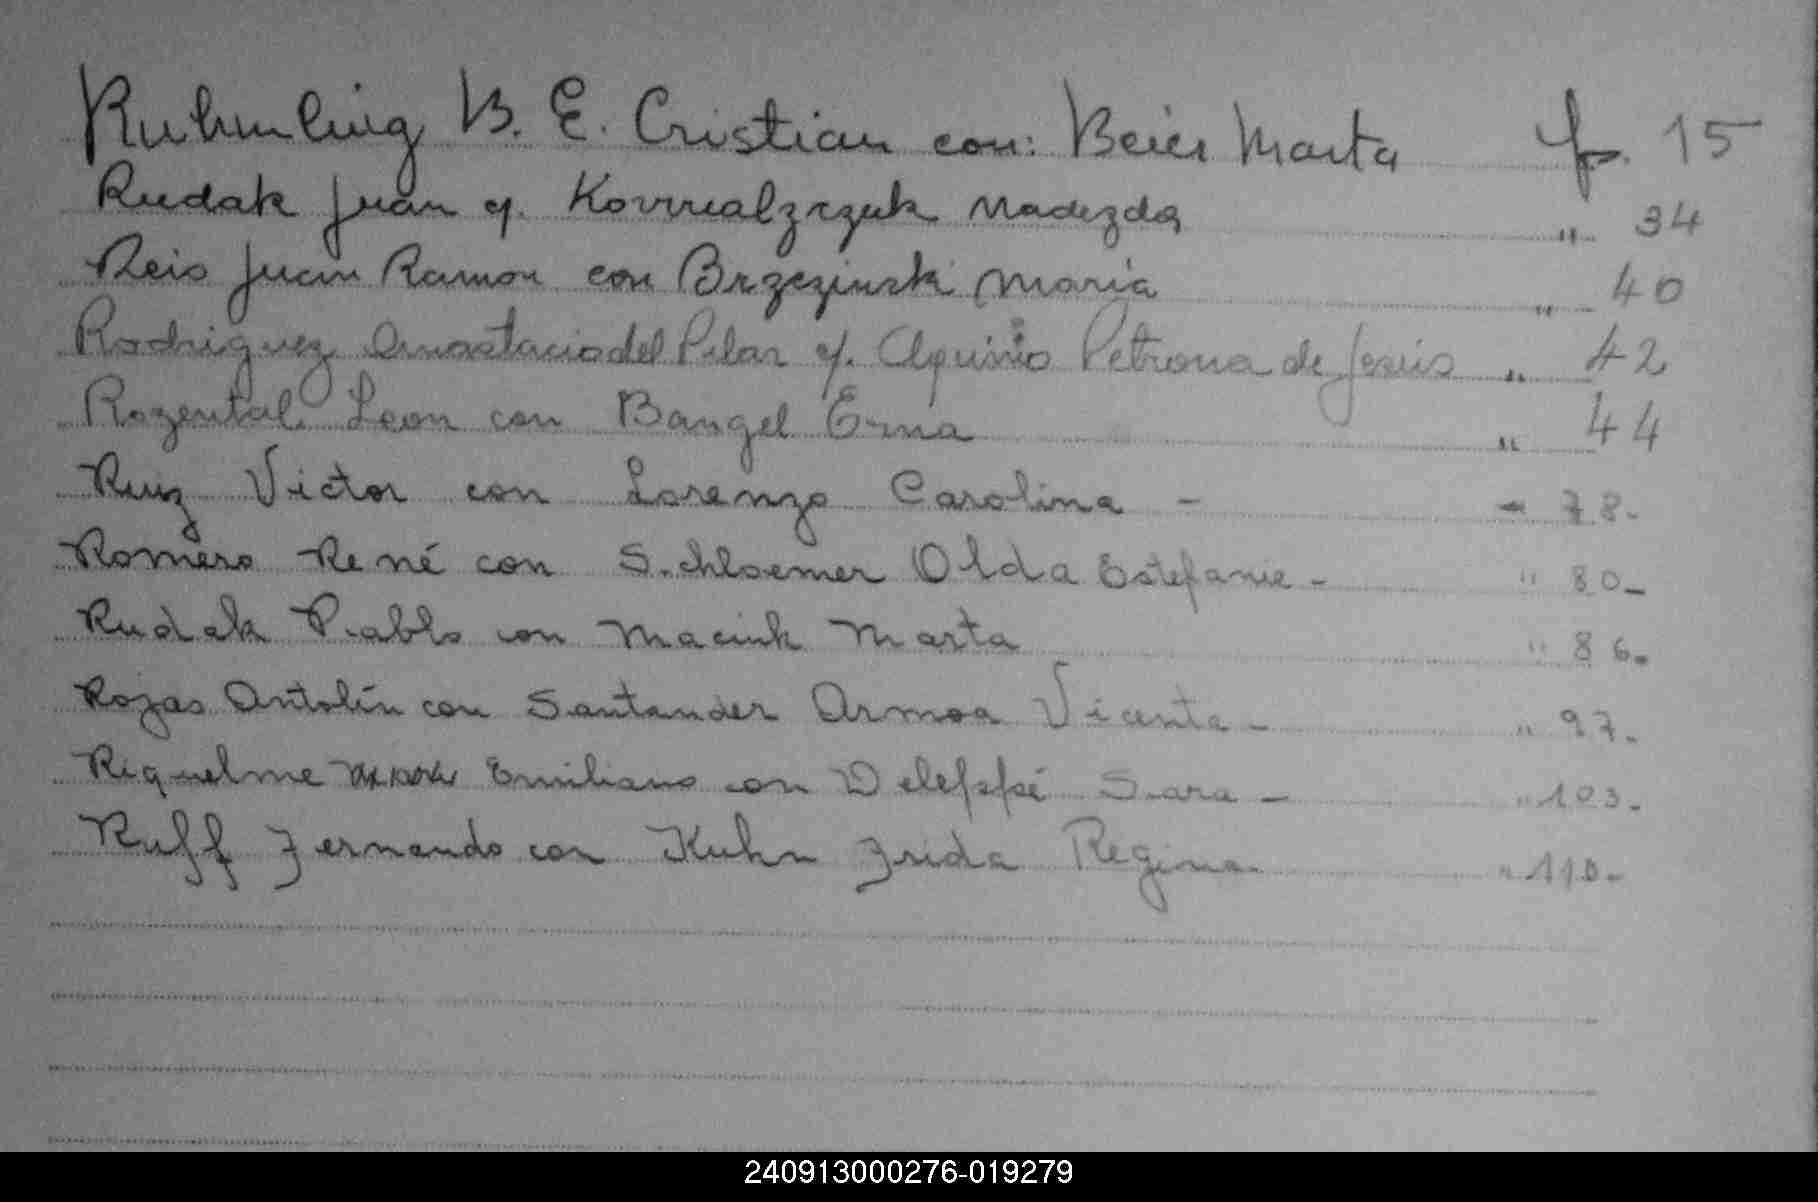 Ruhmling B. E. Cristian con: Beier Marta f. 15
Rudak Juan y. Kowalzczuk Nadezda " 34
Reis Juan Ramon con Brzezinski Maria " 40
Rodriguez Anastacio del Pilar y. Aquino Petrona de Jesús " 42
Rozental Leon con Bangel Erna " 44
Ruiz Victor con Lorenzo Carolina - " 78-
Romero René con Schloemer Olda Estefanie - " 80-
Rudak Pablo con Maciuk Marta " 86-
Rojas Antolín con Santander Armoa Vicenta - " 97-
Riquelme Emiliano con Deleppé Sara - " 103-
Ruff Fernando con Kuhn Frida Regina " 110-
240913000276-019279